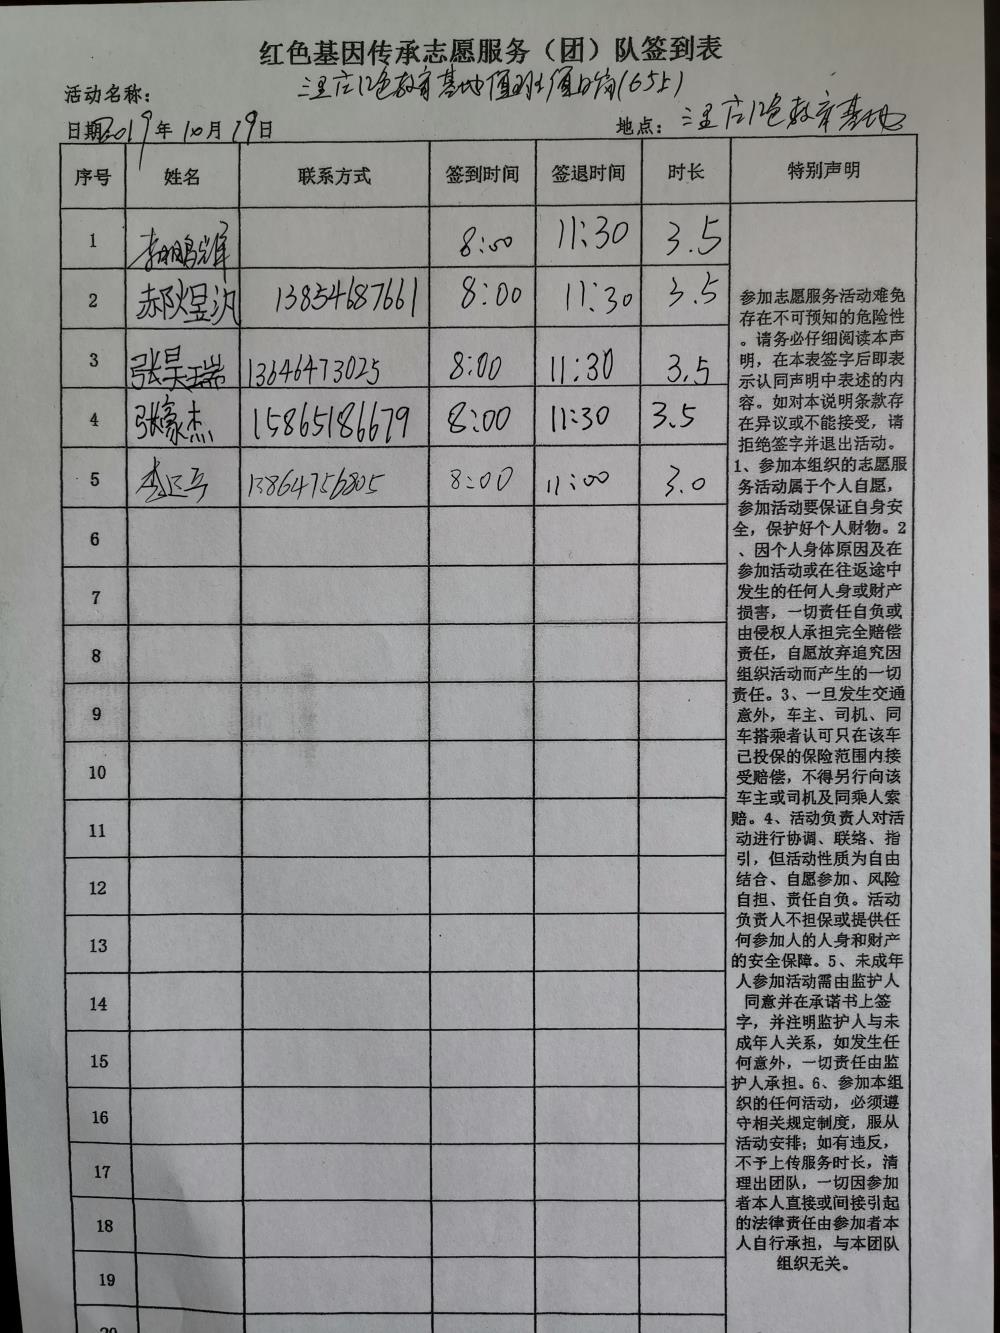 红色基因传承志愿服务（团）队签到表
活动名称：三里庄红色教育基地值班值日岗(65上)
日期2019年10月19日 地点：三里庄红色教育基地
序号 姓名 联系方式 签到时间 签退时间 时长 特别声明
1 8:00 11:30 3.5
2 郝煜汎 13854687661 8:00 11:30 3.5
3 张昊瑞 13646473025 8:00 11:30 3.5
4 张豪杰 15865186679 8:00 11:30 3.5
5 13864756805 8:00 11:00 3.0
6
7
8
9
10
11
12
13
14
15
16
17
18
19
20
参加志愿服务活动难免
存在不可预知的危险性
。请务必仔细阅读本声
明，在本表签字后即表
示认同声明中表述的内
容。如对本说明条款存
在异议或不能接受，请
拒绝签字并退出活动。
1、参加本组织的志愿服
务活动属于个人自愿，
参加活动要保证自身安
全，保护好个人财物。2
、因个人身体原因及在
参加活动或在往返途中
发生的任何人身或财产
损害，一切责任自负或
由侵权人承担完全赔偿
责任，自愿放弃追究因
组织活动而产生的一切
责任。3、一旦发生交通
意外，车主、司机、同
车搭乘者认可只在该车
已投保的保险范围内接
受赔偿，不得另行向该
车主或司机及同乘人索
赔。4、活动负责人对活
动进行协调、联络、指
引，但活动性质为自由
结合、自愿参加、风险
自担、责任自负。活动
负责人不担保或提供任
何参加人的人身和财产
的安全保障。5、未成年
人参加活动需由监护人
同意并在承诺书上签
字，并注明监护人与未
成年人关系，如发生任
何意外，一切责任由监
护人承担。6、参加本组
织的任何活动，必须遵
守相关规定制度，服从
活动安排；如有违反，
不予上传服务时长，清
理出团队，一切因参加
者本人直接或间接引起
的法律责任由参加者本
人自行承担，与本团队
组织无关。